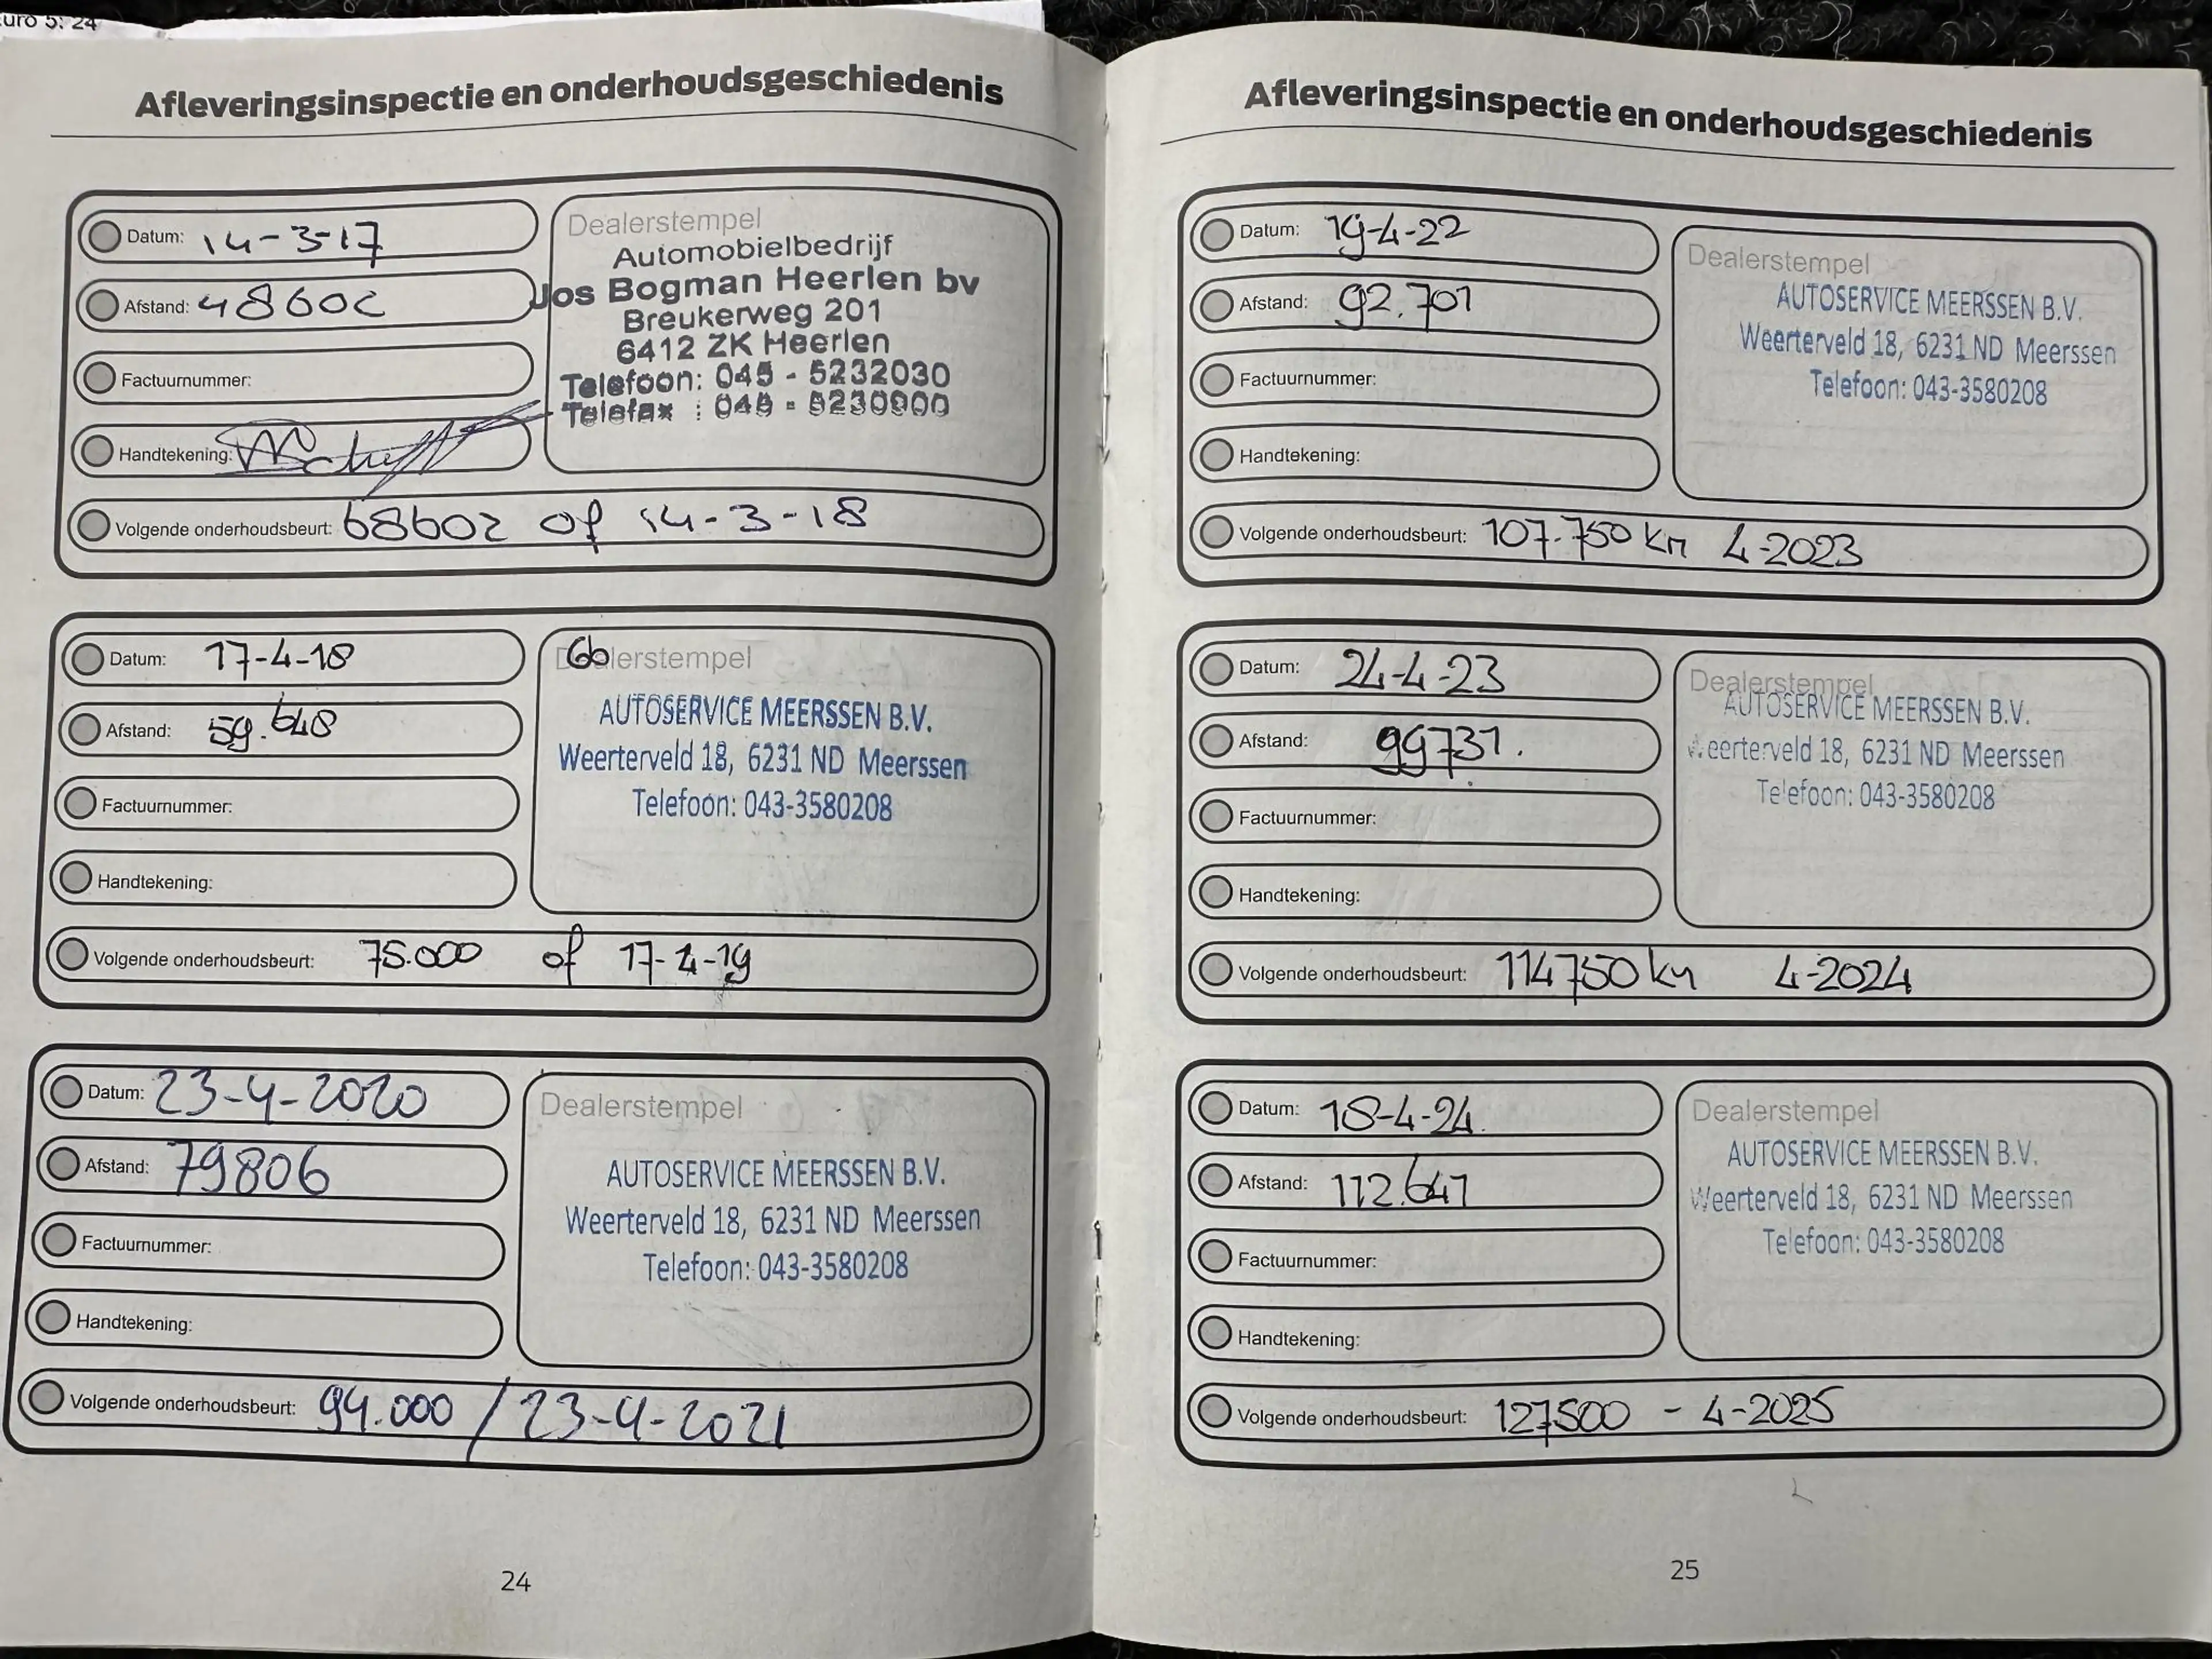 uro 5: 24
Afleveringsinspectie en onderhoudsgeschiedenis
Datum: 14-3-17
Afstand: 48602
Factuurnummer:
Handtekening:
Volgende onderhoudsbeurt: 68602 of 14-3-18
Dealerstempel
Automobielbedrijf
Jos Bogman Heerlen bv
Breukerweg 201
6412 ZK Heerlen
Telefoon: 045 - 5232030
Telefax : 045 - 5230900
Datum: 17-4-18
Afstand: 59.648
Factuurnummer:
Handtekening:
Volgende onderhoudsbeurt: 75.000 of 17-4-19
Dealerstempel
AUTOSERVICE MEERSSEN B.V.
Weerterveld 18, 6231 ND Meerssen
Telefoon: 043-3580208
Datum: 23-4-2020
Afstand: 79806
Factuurnummer:
Handtekening:
Volgende onderhoudsbeurt: 94.000 / 23-4-2021
Dealerstempel
AUTOSERVICE MEERSSEN B.V.
Weerterveld 18, 6231 ND Meerssen
Telefoon: 043-3580208
24
Afleveringsinspectie en onderhoudsgeschiedenis
Datum: 19-4-22
Afstand: 92.701
Factuurnummer:
Handtekening:
Volgende onderhoudsbeurt: 107.750 km 4-2023
Dealerstempel
AUTOSERVICE MEERSSEN B.V.
Weerterveld 18, 6231 ND Meerssen
Telefoon: 043-3580208
Datum: 24-4-23
Afstand: 99731.
Factuurnummer:
Handtekening:
Volgende onderhoudsbeurt: 114750 km 4-2024
Dealerstempel
AUTOSERVICE MEERSSEN B.V.
Weerterveld 18, 6231 ND Meerssen
Telefoon: 043-3580208
Datum: 18-4-24
Afstand: 112.647
Factuurnummer:
Handtekening:
Volgende onderhoudsbeurt: 127500 - 4-2025
Dealerstempel
AUTOSERVICE MEERSSEN B.V.
Weerterveld 18, 6231 ND Meerssen
Telefoon: 043-3580208
25